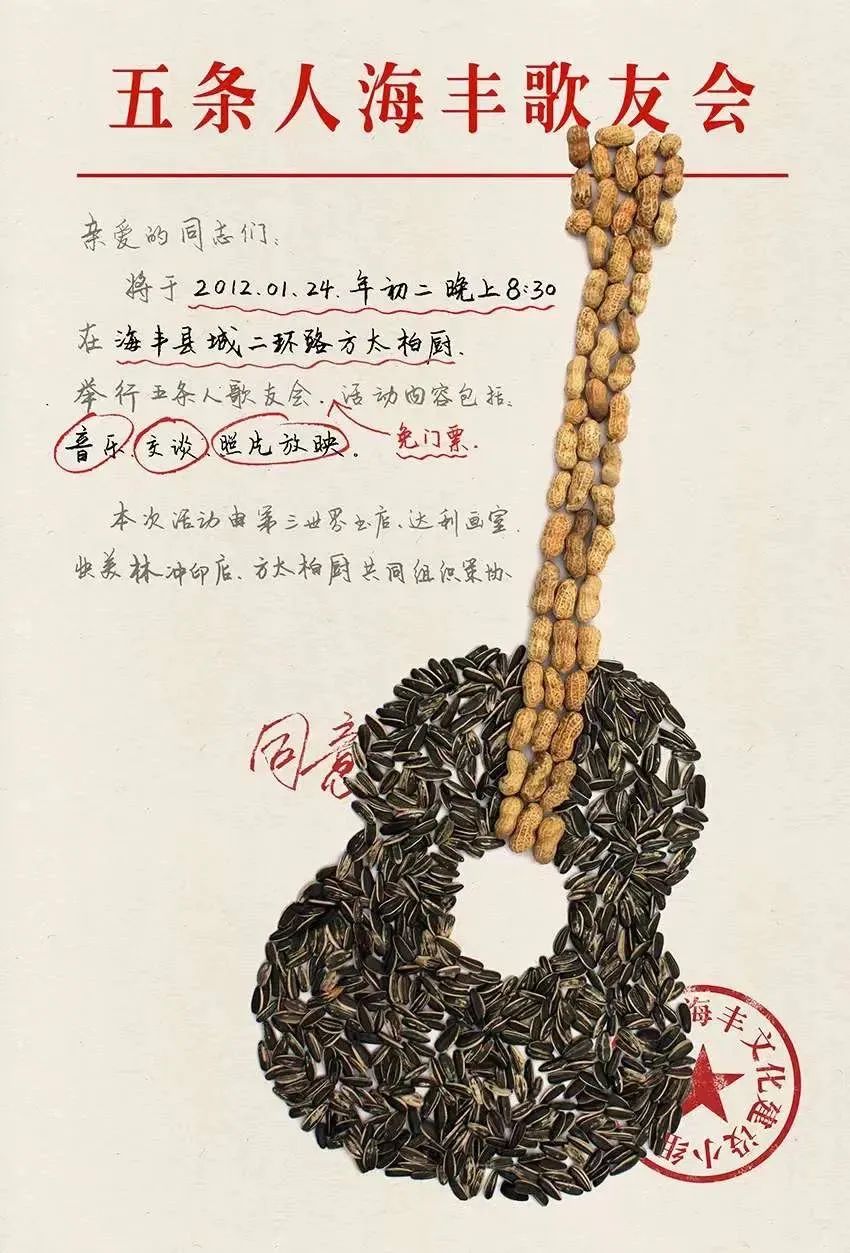 五条人海丰歌友会
亲爱的同志们：
将于 2012.01.24.年初二晚上8:30
在 海丰县城二环路方太柏厨.
举行五条人歌友会. 活动内容包括:
音乐、交谈、照片放映.
免门票.
本次活动由第三世界书店、达利画室、
快美林冲印店、方太柏厨共同组织策协、
同意
海丰文化建设小组